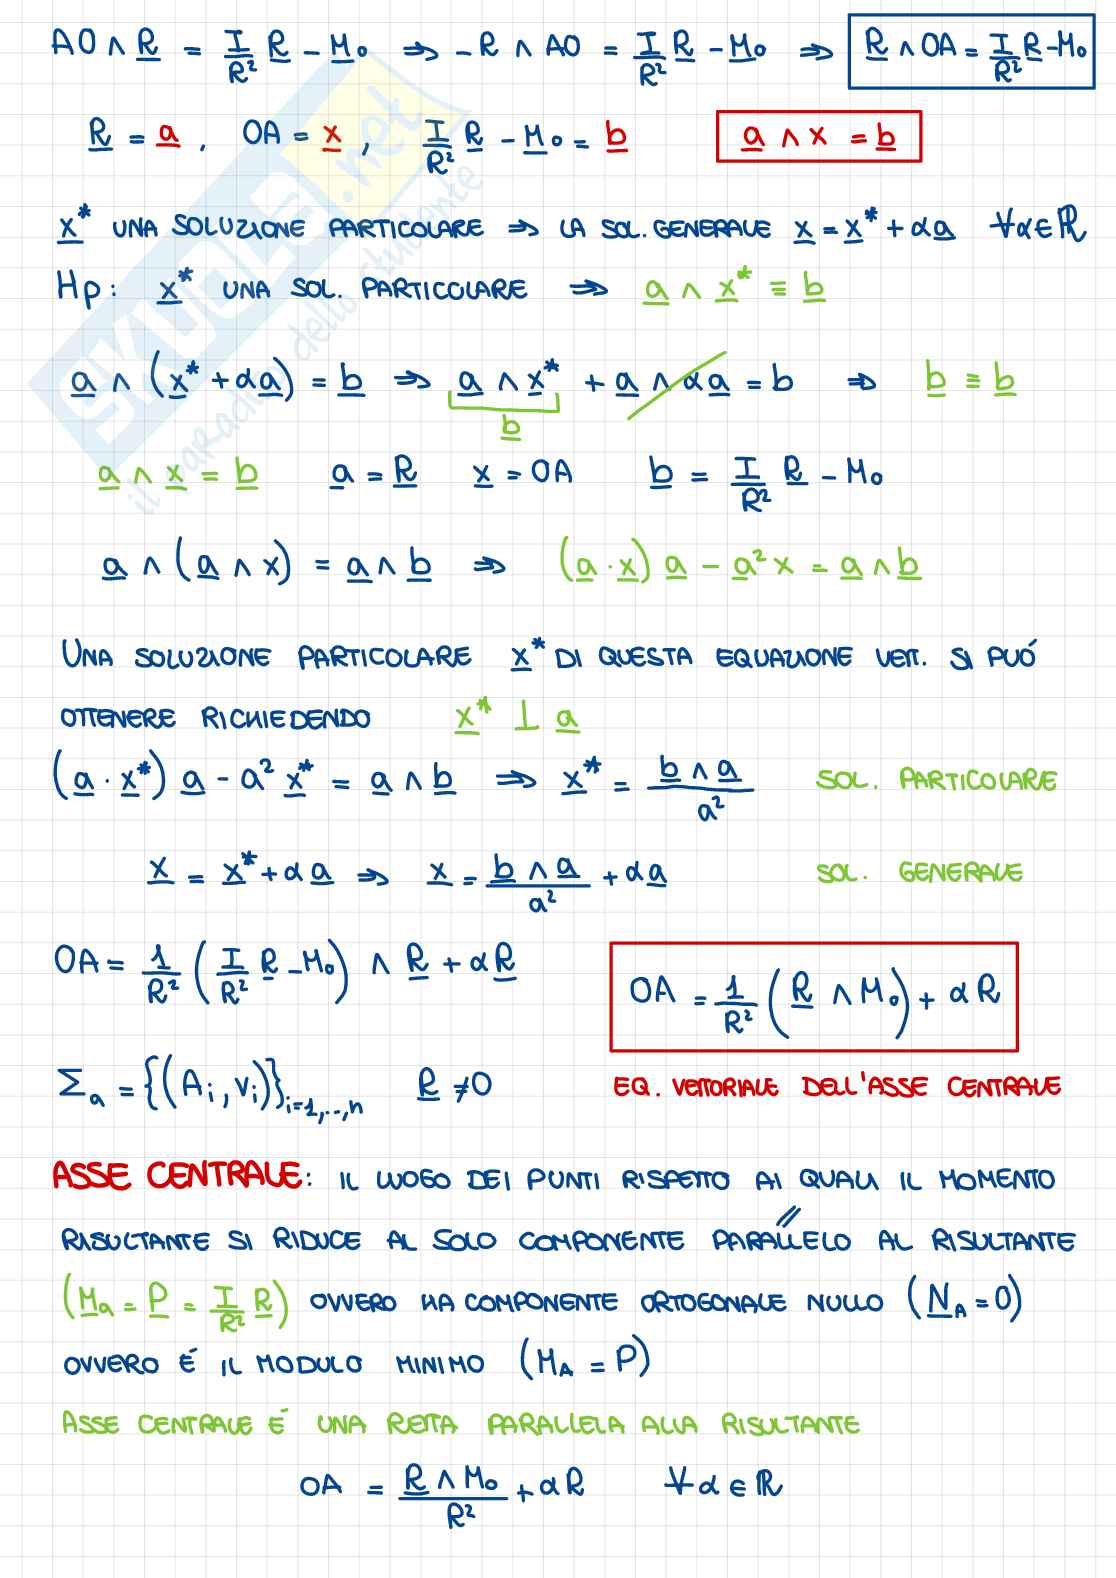 AO ∧ R = I/R² R - M₀ ⇒ - R ∧ AO = I/R² R - M₀ ⇒ R ∧ OA = I/R² R - M₀
R = a , OA = x , I/R² R - M₀ = b a ∧ x = b
x* UNA SOLUZIONE PARTICOLARE ⇒ LA SOL. GENERALE x = x* + αa ∀α∈ℝ
Hp: x* UNA SOL. PARTICOLARE ⇒ a ∧ x* ≡ b
a ∧ (x* + αa) = b ⇒ a ∧ x* + a ∧ αa = b ⇒ b ≡ b
b
a ∧ x = b a = R x = OA b = I/R² R - M₀
a ∧ (a ∧ x) = a ∧ b ⇒ (a · x) a - a² x = a ∧ b
UNA SOLUZIONE PARTICOLARE x* DI QUESTA EQUAZIONE VETT. SI PUÓ
OTTENERE RICHIEDENDO x* ⊥ a
(a · x*) a - a² x* = a ∧ b ⇒ x* = b ∧ a / a² SOL. PARTICOLARE
x = x* + αa ⇒ x = b ∧ a / a² + αa SOL. GENERALE
OA = 1/R² (I/R² R - M₀) ∧ R + αR OA = 1/R² (R ∧ M₀) + αR
Σₐ = {(Aᵢ, vᵢ)}ᵢ₌₁,..,ₙ R ≠ 0 EQ. VETTORIALE DELL'ASSE CENTRALE
ASSE CENTRALE: IL LUOGO DEI PUNTI RISPETTO AI QUALI IL MOMENTO
RISULTANTE SI RIDUCE AL SOLO COMPONENTE PARALLELO AL RISULTANTE
(Mₐ = P = I/R² R) OVVERO HA COMPONENTE ORTOGONALE NULLO (N_A = 0)
OVVERO É IL MODULO MINIMO (M_A = P)
ASSE CENTRALE É UNA RETTA PARALLELA ALLA RISULTANTE
OA = R ∧ M₀ / R² + αR ∀α∈ℝ
SKUOLA.net
il paradiso dello studente